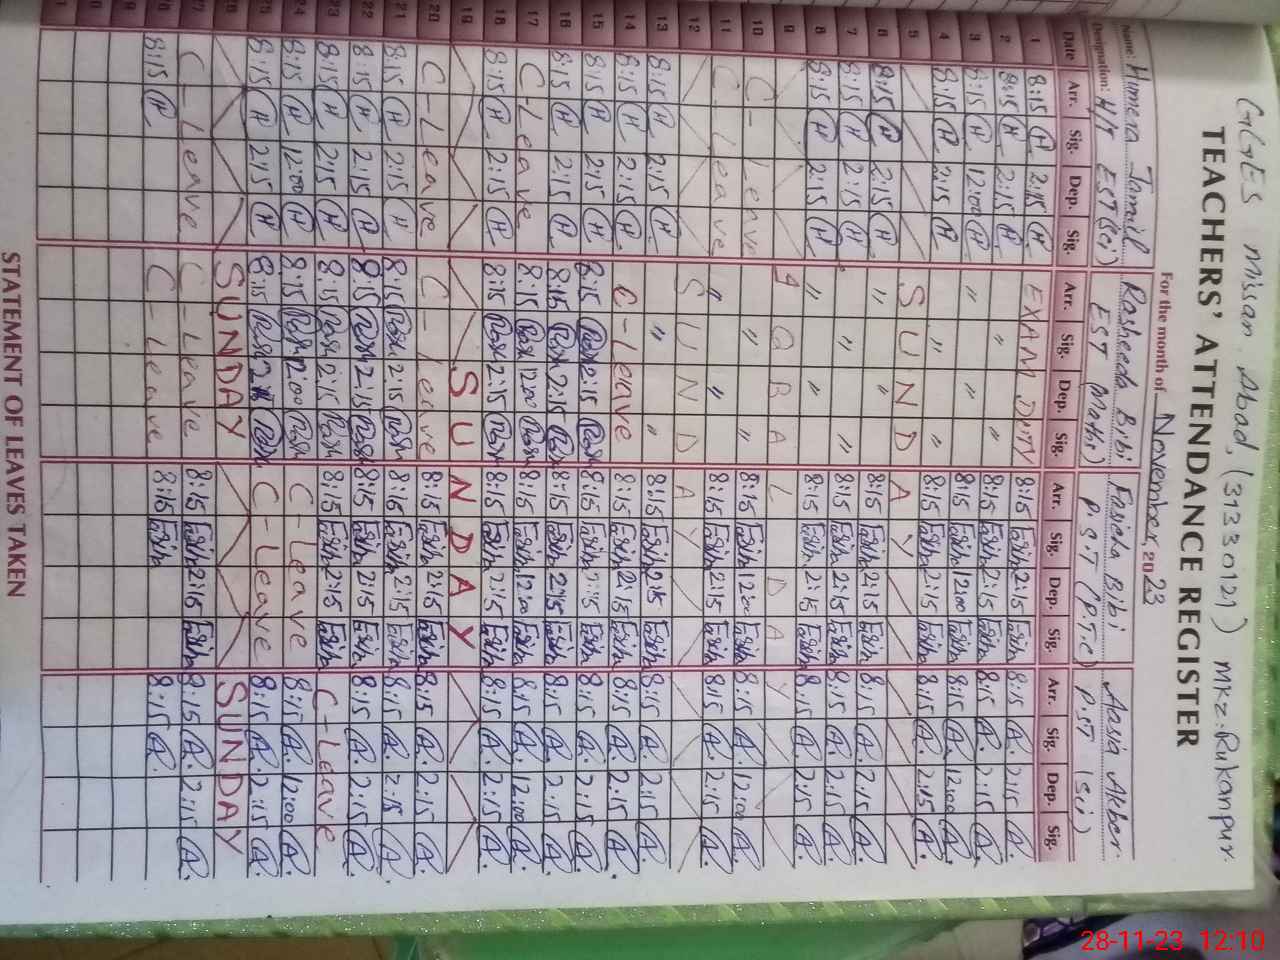 GGES Missan Abad, (31330121) mkz: Rukanpur.
TEACHERS' ATTENDANCE REGISTER
For the month of November, 2023
Name: Humera Jamil Rasheeda Bibi Fasiha Bibi Aasia Akber
Designation: H/T EST(Sci) EST (Math) P.S.T (P.T.C) PST (Sci)
Date Arr. Sig. Dep. Sig. Arr. Sig. Dep. Sig. Arr. Sig. Dep. Sig. Arr. Sig. Dep. Sig.
1 8:15 H 2:15 H EXAM DUTY 8:15 2:15 8:15 A. 2:15 A.
2 8:15 H 2:15 H " " 8:15 2:15 8:15 A. 2:15 A.
3 8:15 H 12:00 H " " 8:15 12:00 8:15 A. 12:00 A.
4 8:15 H 2:15 H " " 8:15 2:15 8:15 A. 2:15 A.
5 SUNDAY
6 8:15 H 2:15 H " " 8:15 2:15 8:15 A. 2:15 A.
7 8:15 H 2:15 H " " 8:15 2:15 8:15 A. 2:15 A.
8 8:15 H 2:15 H " " 8:15 2:15 8:15 A. 2:15 A.
9 IQBAL DAY
10 C-Leave " " 8:15 12:00 8:15 A. 12:00 A.
11 C-Leave " " 8:15 2:15 8:15 A. 2:15 A.
12 SUNDAY
13 8:15 H 2:15 H " " 8:15 2:15 8:15 A. 2:15 A.
14 8:15 H 2:15 H C-Leave 8:15 2:15 8:15 A. 2:15 A.
15 8:15 H 2:15 H 8:15 2:15 8:15 2:15 8:15 A. 2:15 A.
16 8:15 H 2:15 H 8:15 2:15 8:15 2:15 8:15 A. 2:15 A.
17 C-Leave 8:15 12:00 8:15 12:00 8:15 A. 12:00 A.
18 8:15 H 2:15 H 8:15 2:15 8:15 2:15 8:15 A. 2:15 A.
19 SUNDAY
20 C-Leave C-Leave 8:15 2:15 8:15 A. 2:15 A.
21 8:15 H 2:15 H 8:15 2:15 8:15 2:15 8:15 A. 2:15 A.
22 8:15 H 2:15 H 8:15 2:15 8:15 2:15 8:15 A. 2:15 A.
23 8:15 H 2:15 H 8:15 2:15 8:15 2:15 C-Leave
24 8:15 H 12:00 H 8:15 12:00 C-Leave 8:15 A. 12:00 A.
25 8:15 H 2:15 H 8:15 C-Leave 8:15 A. 2:15 A.
26 SUNDAY SUNDAY
27 C-Leave C-Leave 8:15 2:15 8:15 A. 2:15 A.
28 8:15 H C-Leave 8:15 8:15 A.
STATEMENT OF LEAVES TAKEN
28-11-23 12:10